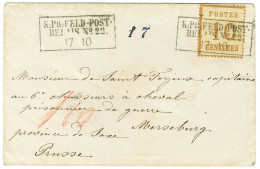 K.PR.FELD-POST-
RELAIS No 22
17 10
17
POSTES
10
CENTIMES
K.PR.FELD-POST-
Monsieur de Saint Foyeux, capitaine
au 6e Chasseurs à cheval
prisonnier de guerre
Merseburg
province de Saxe
Prusse